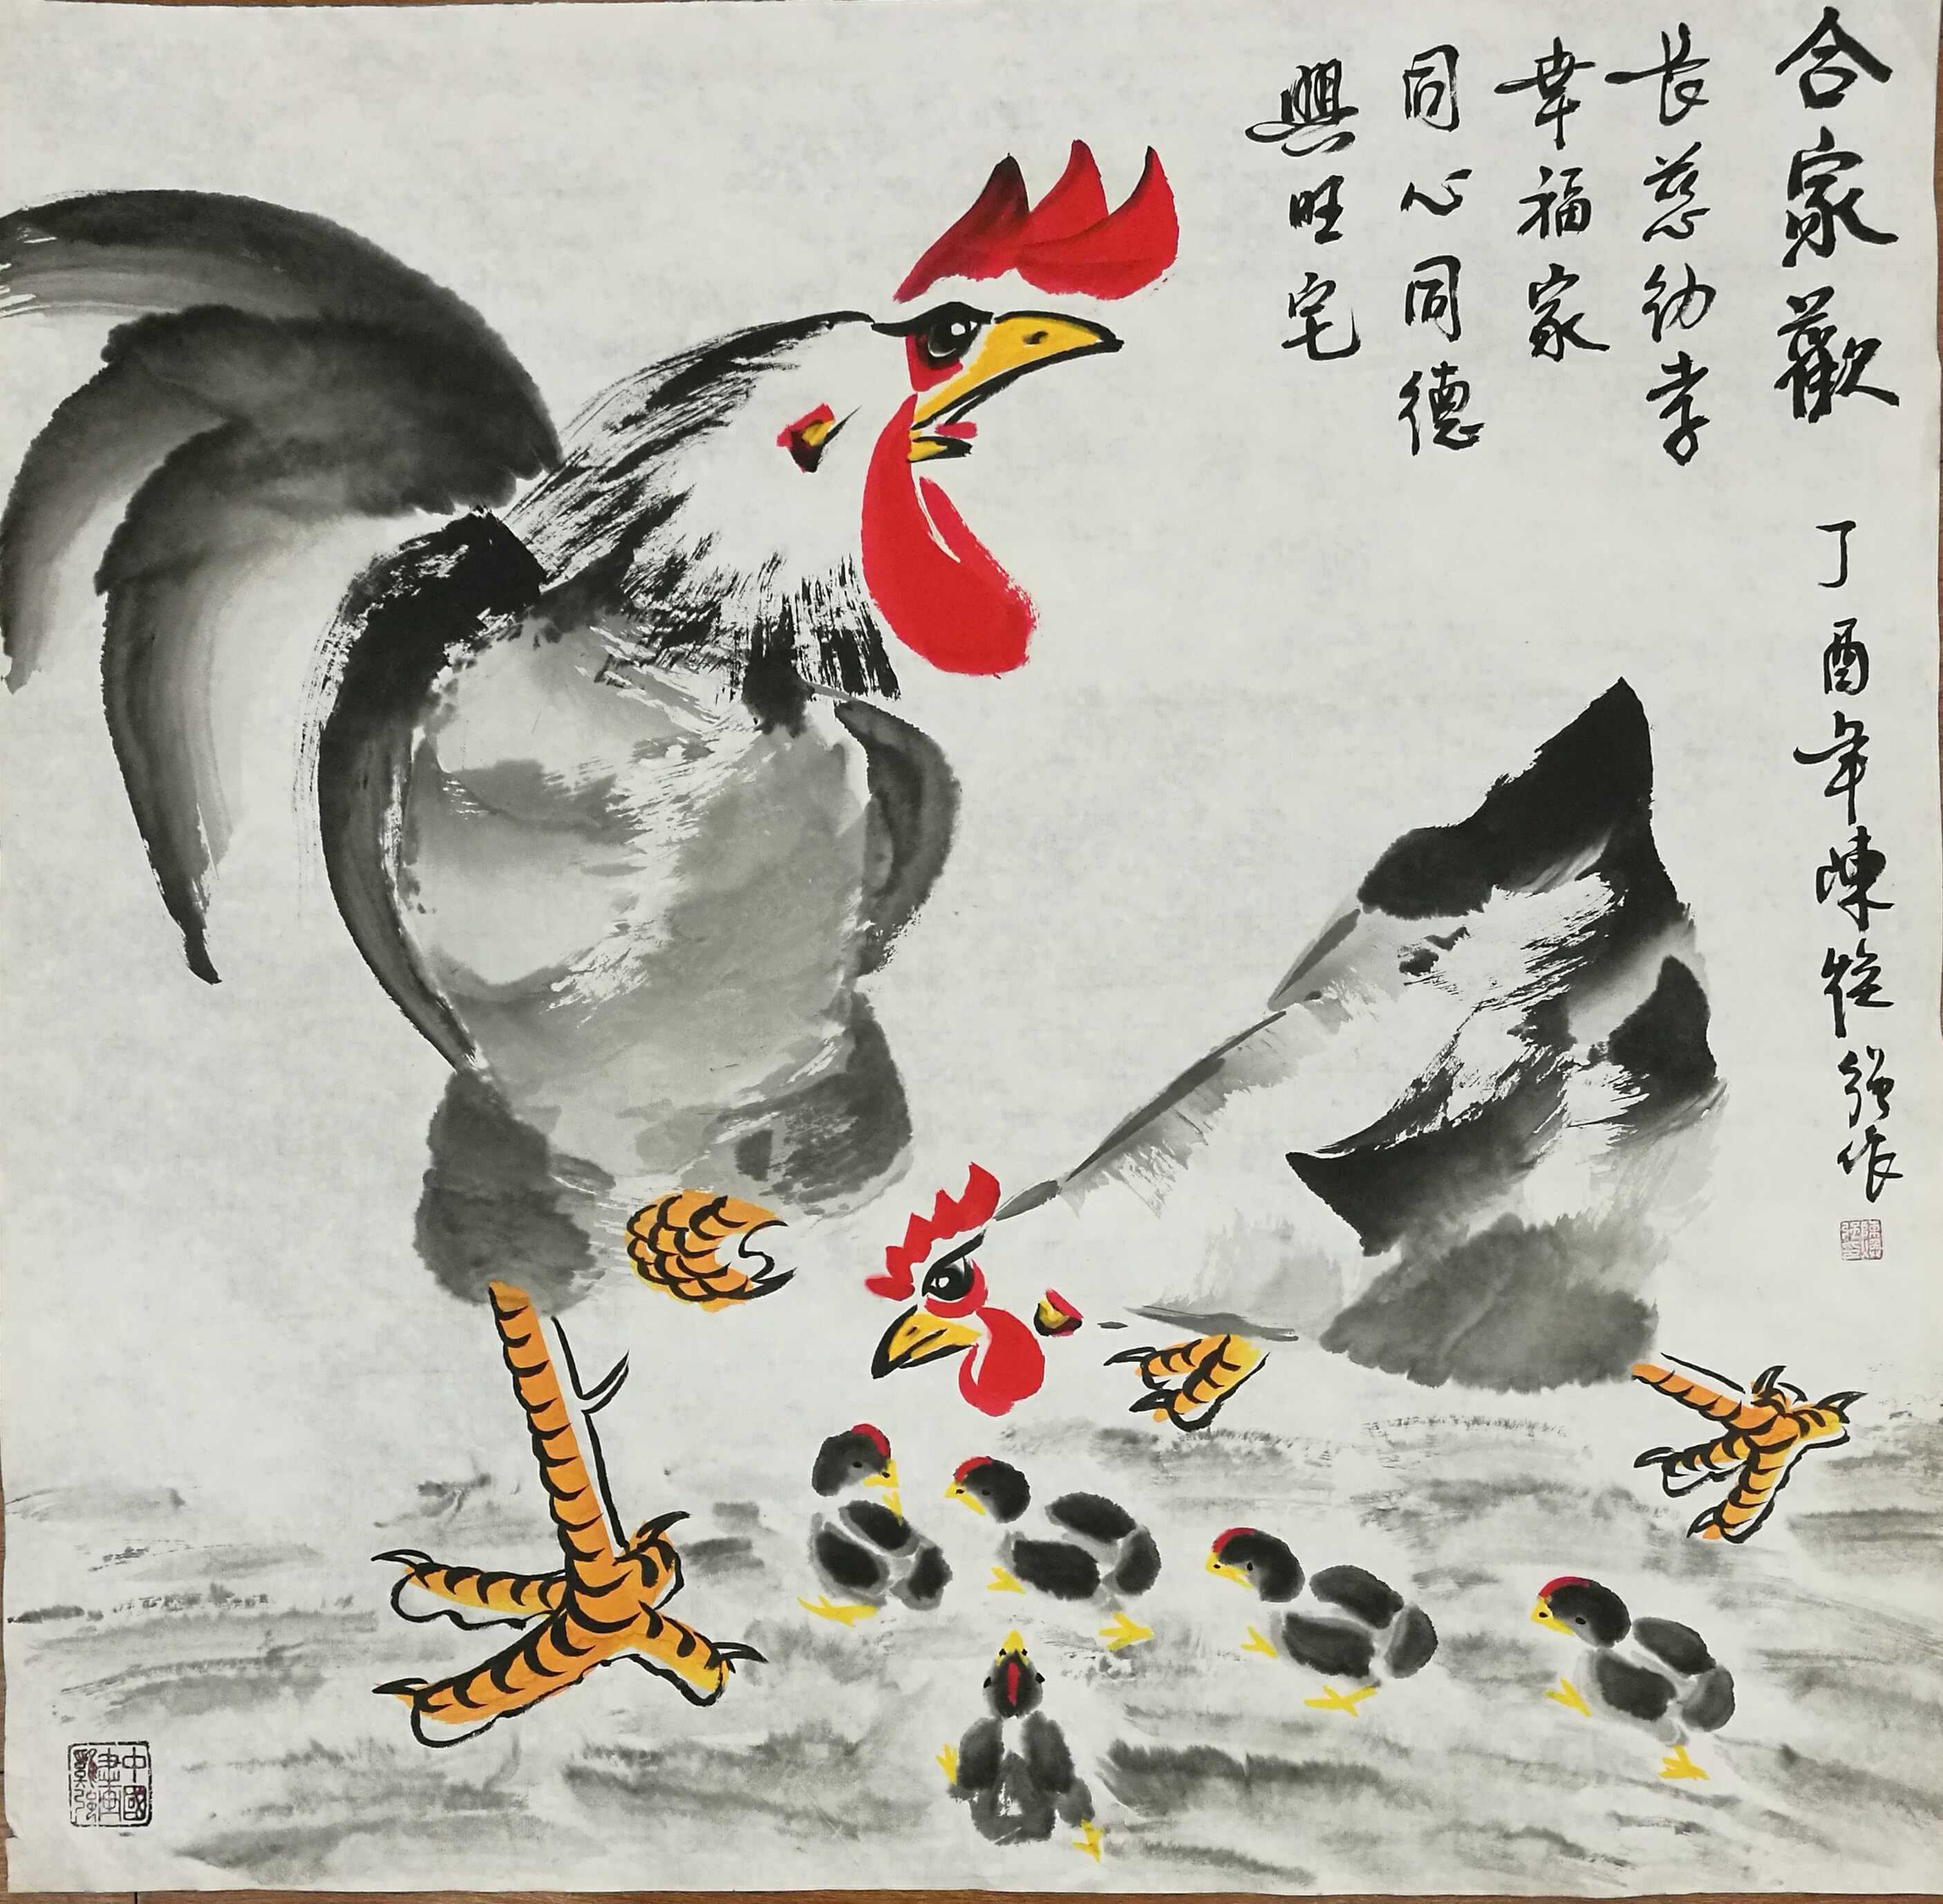 合家歡
丁酉年陳强作
長慈幼孝
幸福家
同心同德
興旺宅
中國